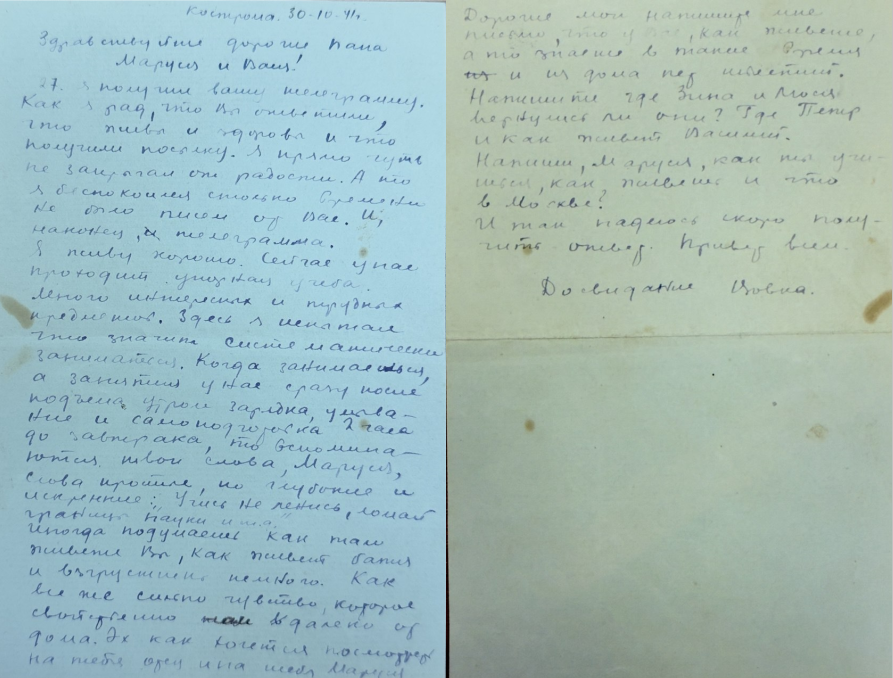 Кострома. 30-10-41г.
Здравствуйте дорогие папа
Маруся и Ваня!
27. я получил вашу телеграмму.
Как я рад, что Вы ответили,
что живы и здоровы и что
получили посылку. Я прямо чуть
не заплакал от радости. А то
я беспокоился столько времени
не было писем от Вас. И,
наконец, телеграмма.
Я живу хорошо. Сейчас у нас
проходит упорная учеба.
Много интересных и трудных
предметов. Здесь я испытал
что значит систематически
заниматься. Когда занимаешься,
а занятия у нас сразу после
подъема, утром зарядка, умыва-
ние и самоподготовка 2 часа
до завтрака, то вспомина-
ются твои слова, Маруся,
слова простые, но глубокие и
искренние: "Учись не ленись, ломай
границы науки и т.д."
Иногда подумаешь как там
живете Вы, как живет
и взгрустнешь немного. Как
все же сильно чувство, которое
свойственно вдалеко от
дома. Эх как хочется посмотреть
на тебя отец и на тебя Маруся
Дорогие мои напишите мне
письмо, что у Вас, как живете,
а то знаете в такие время
и из дома нет известий.
Напишите где Зина и Люся
вернулись ли они? Где Петр
и как живет Василий.
Напиши, Маруся, как ты учи-
шься, как живешь и что
в Москве?
И так надеюсь скоро полу-
чить ответ. Привет всем.
Досвидание Вовка.